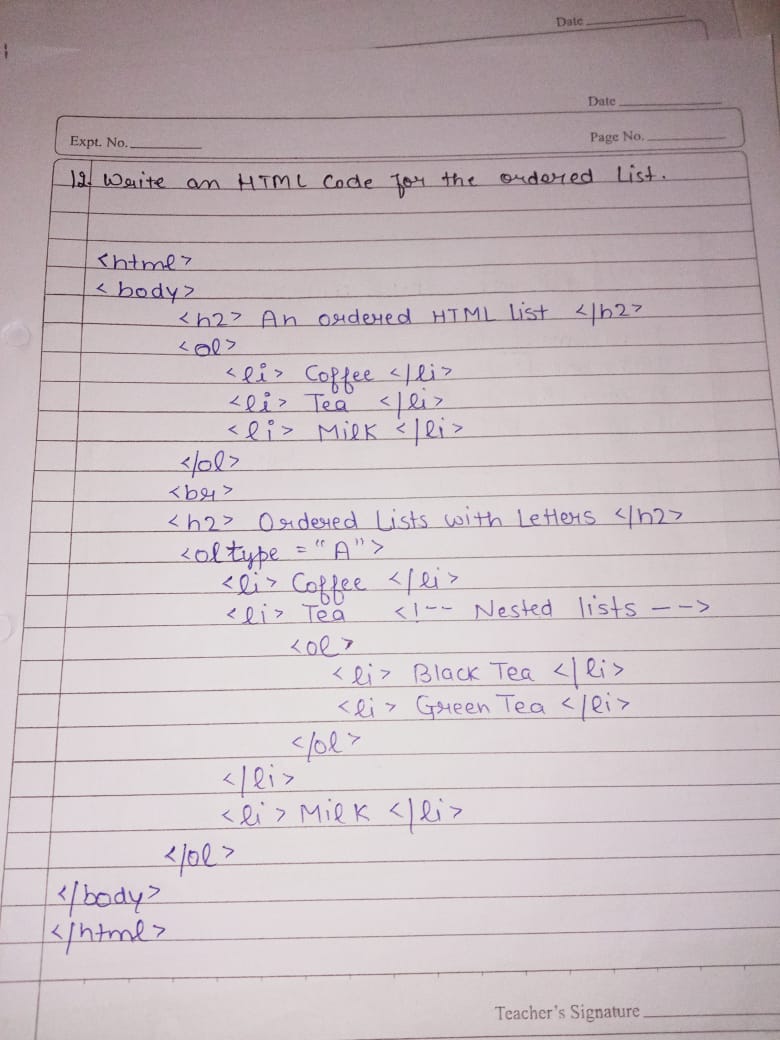 Date
Date
Expt. No.
Page No.
12. Write an HTML Code for the ordered List.
<html>
<body>
<h2> An ordered HTML list </h2>
<ol>
<li> Coffee </li>
<li> Tea </li>
<li> Milk </li>
</ol>
<br>
<h2> Ordered Lists with Letters </h2>
<ol type = "A">
<li> Coffee </li>
<li> Tea <!-- Nested lists -->
<ol>
<li> Black Tea </li>
<li> Green Tea </li>
</ol>
</li>
<li> Milk </li>
</ol>
</body>
</html>
Teacher's Signature